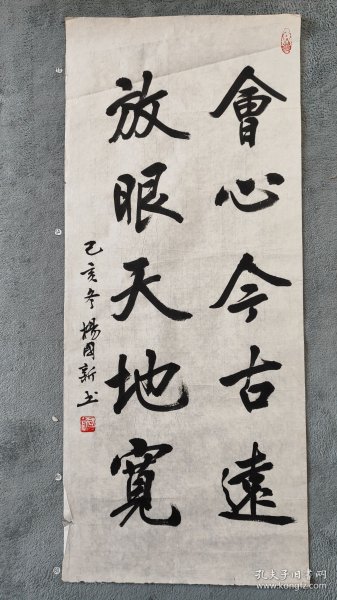 會心今古遠
放眼天地寬
己亥冬楊國新书
孔夫子旧书网